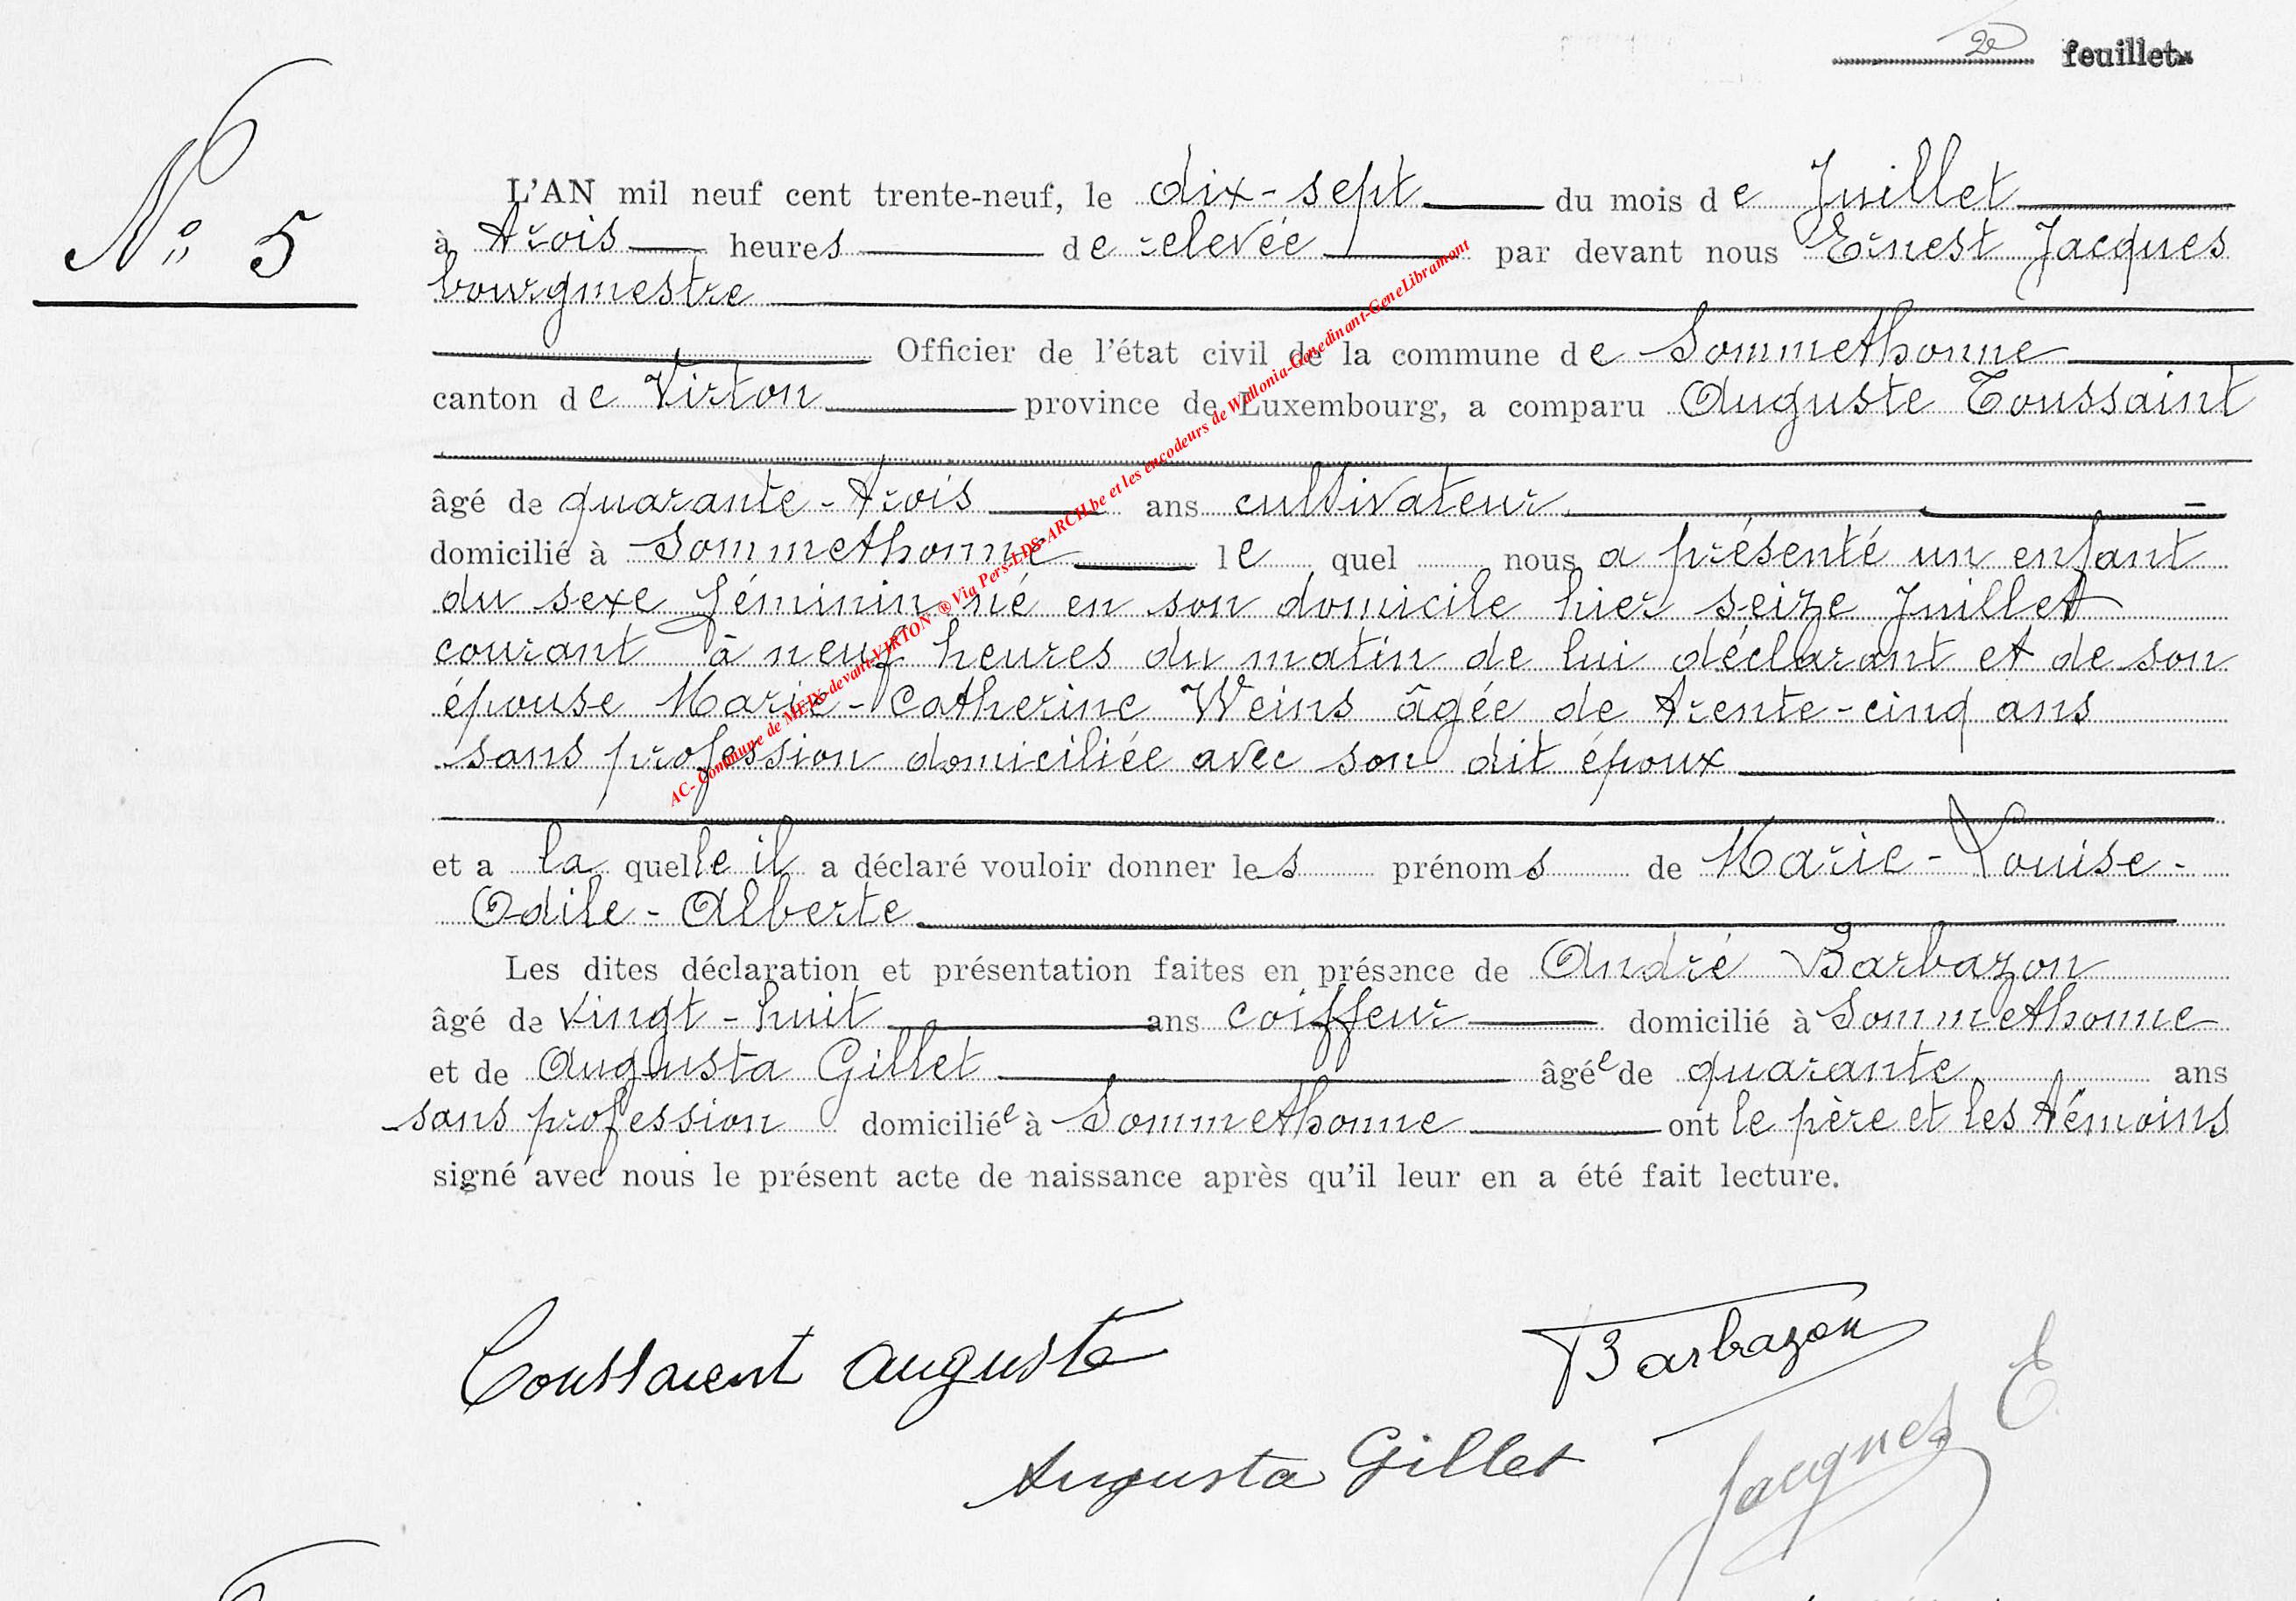 2e feuillet
N° 5
L'AN mil neuf cent trente-neuf, le dix-sept du mois de Juillet
à trois heures de relevée par devant nous Ernest Jacques
bourgmestre
Officier de l'état civil de la commune de Sommethonne
canton de Virton province de Luxembourg, a comparu Auguste Toussaint
âgé de quarante-trois ans cultivateur
domicilié à Sommethonne le quel nous a présenté un enfant
du sexe féminin né en son domicile hier seize Juillet
courant à neuf heures du matin de lui déclarant et de son
épouse Marie-Catherine Weins âgée de trente-cinq ans
sans profession domiciliée avec son dit époux
et a la quelle il a déclaré vouloir donner les prénoms de Marie-Louise-
Odile-Alberte
Les dites déclaration et présentation faites en présence de André Barbazon
âgé de vingt-huit ans coiffeur domicilié à Sommethonne
et de Augusta Gillet âgée de quarante ans
sans profession domiciliée à Sommethonne ont le père et les témoins
signé avec nous le présent acte de naissance après qu'il leur en a été fait lecture.
Toussaint Auguste
Barbazon
Augusta Gillet
Jacques E
AC- Commune de MEIX-devant-VIRTON ® Via Pers-LDS-ARCH.be et les encodeurs de Wallonia-Genedinant-GeneLibramont